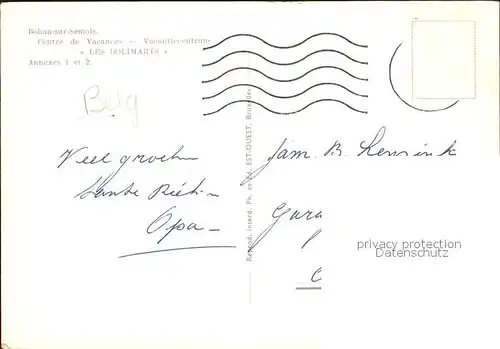 Bohan-sur-Semois.
Centre de Vacances — Vacantiecentrum
« LES DOLIMARTS »
Annexes 1 et 2.
Belg
Veel groeten
Tante Riet en
Opa
Reprod. interd. Ph. et Ed. EST-OUEST, Bruxelles
Fam. B.
privacy protection
Datenschutz